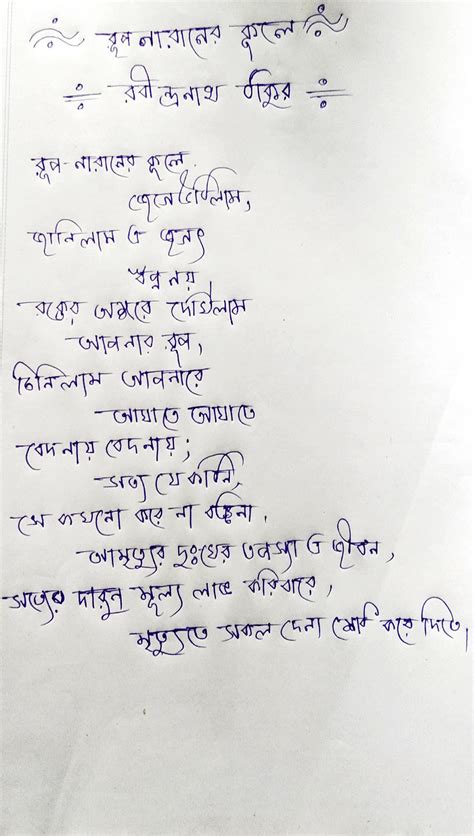 রূপনারানের কূলে
রবীন্দ্রনাথ ঠাকুর
রূপ-নারানের কূলে
জেগে উঠিলাম,
জানিলাম এ জগৎ
স্বপ্ন নয়
রক্তের অক্ষরে দেখিলাম
আপনার রূপ,
চিনিলাম আপনারে
আঘাতে আঘাতে
বেদনায় বেদনায়;
সত্য যে কঠিন,
সে কখনো করে না বঞ্চনা,
আমৃত্যুর দুঃখের তপস্যা এ জীবন,
সত্যের দারুন মূল্য লাভ করিবারে,
মৃত্যুতে সকল দেনা শোধ করে দিতে।